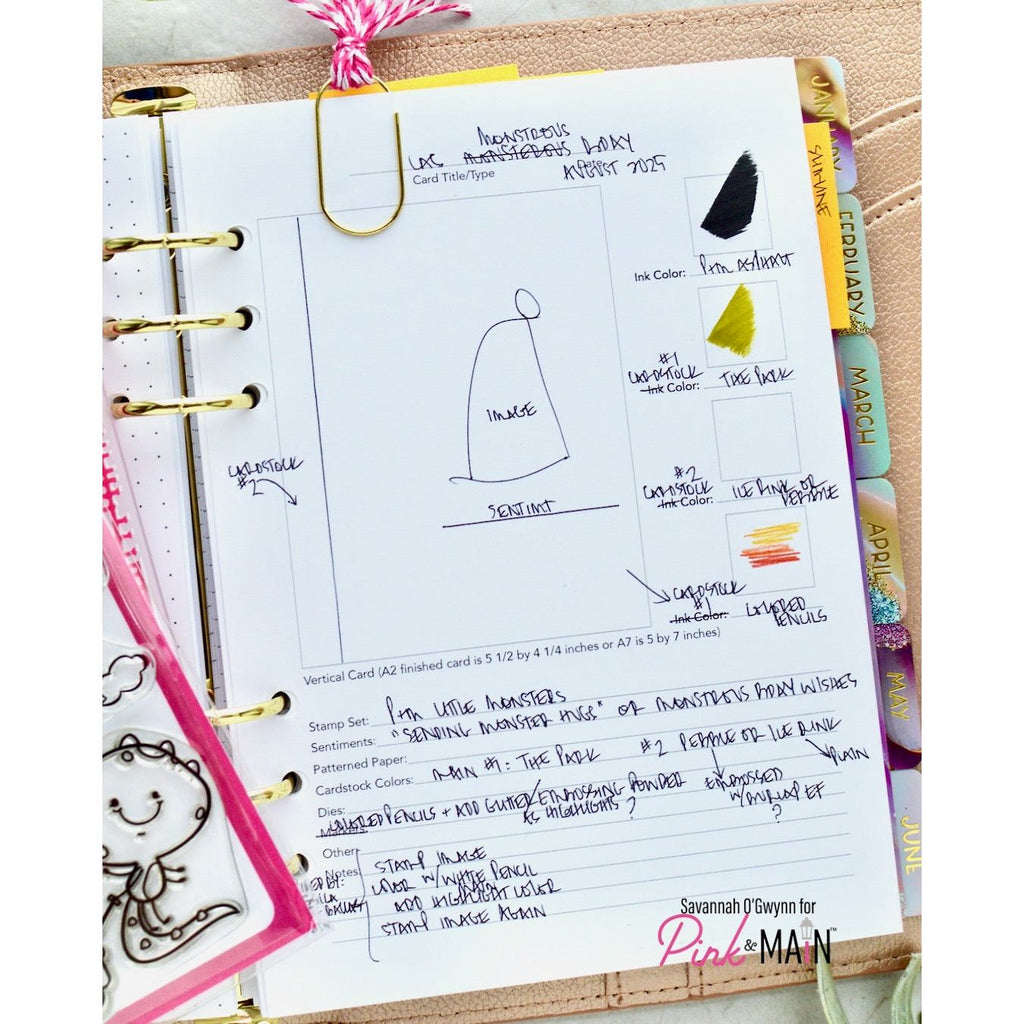 MONSTROUS
CAS MONSTEROUS BDAY
Card Title/Type
Date
AUGUST 2025
JANUARY
SUNSHINE
Ink Color: P+M ASPHALT
FEBRUARY
#1
CARDSTOCK
Ink Color: THE PARK
MARCH
IMAGE
CARDSTOCK
#2
#2
CARDSTOCK
Ink Color: ICE RINK OR
PEBBLE
SENTIMT
APRIL
CARDSTOCK
#1
Ink Color: LAYERED
PENCILS
Vertical Card (A2 finished card is 5 1/2 by 4 1/4 inches or A7 is 5 by 7 inches)
MAY
Stamp Set: P+M LITTLE MONSTERS
Sentiments: "SENDING MONSTER HUGS" OR MONSTROUS BDAY WISHES
Patterned Paper:
Cardstock Colors: MAIN #1: THE PARK #2 PEBBLE OR ICE RINK
PLAIN
EMBOSSED
W/BURLAP EF
?
Dies:
COLORED PENCILS + ADD GLITTER/EMBOSSING POWDER
AS HIGHLIGHTS ?
JUNE
Other
Notes
STAMP IMAGE
COLOR W/WHITE PENCIL
ADD HIGHLIGHT COLOR
STAMP IMAGE AGAIN
Savannah O'Gwynn for
Pink & MAiN™